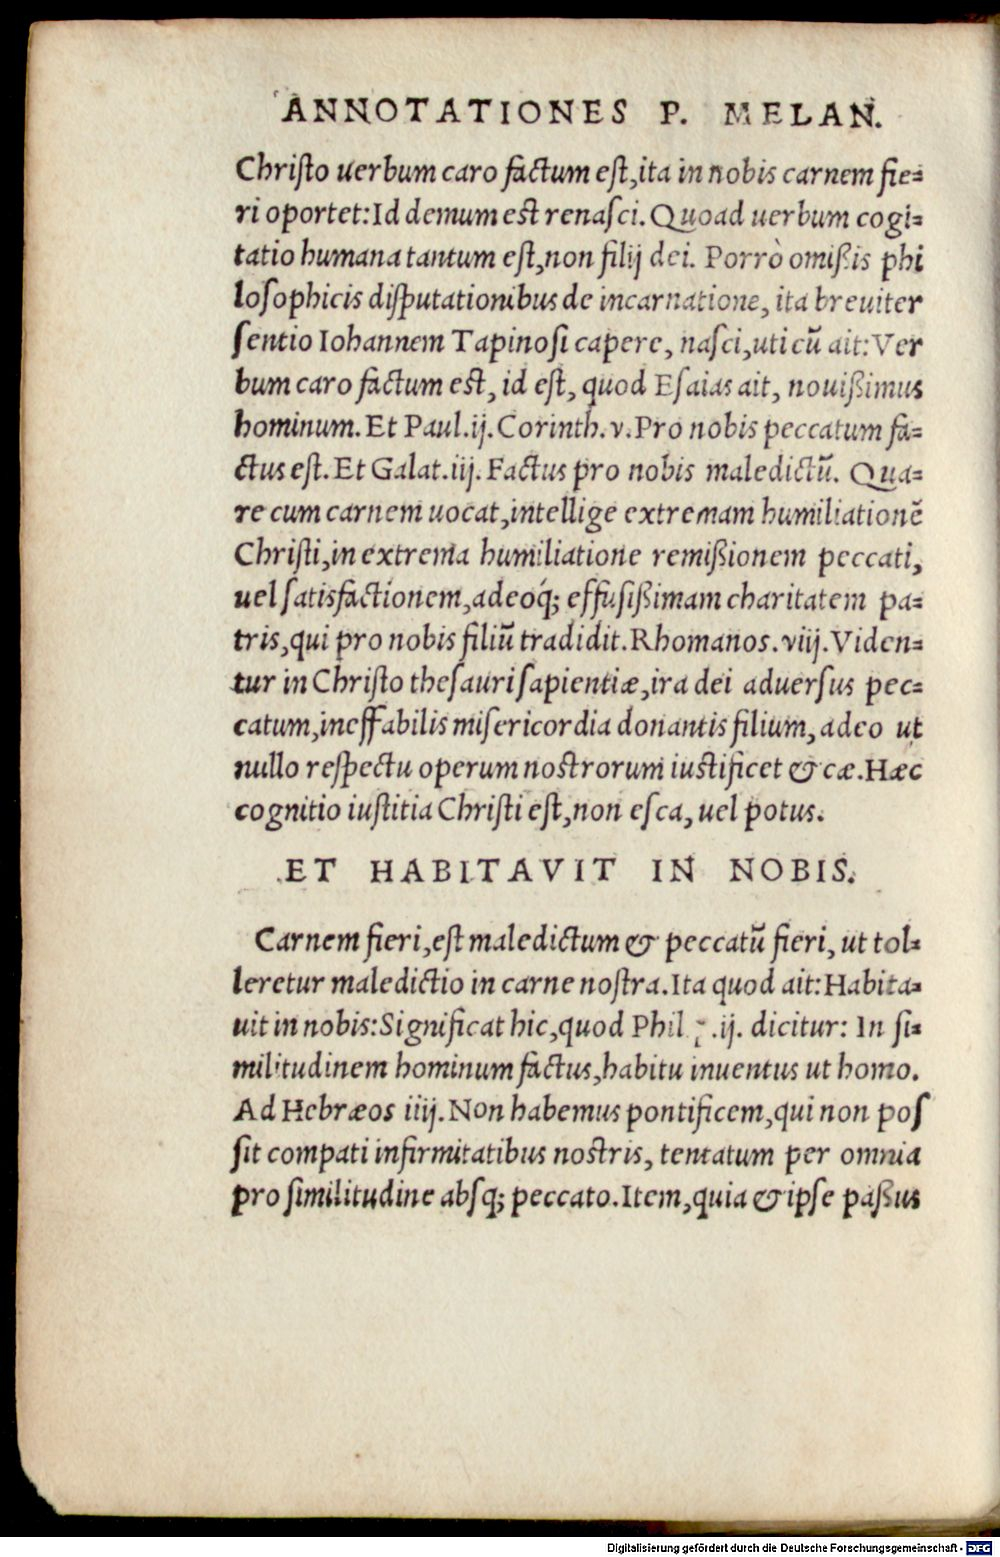 ANNOTATIONES P. MELAN.
Christo uerbum caro factum est,ita in nobis carnem fie=
ri oportet:Id demum est renasci. Quoad uerbum cogi=
tatio humana tantum est,non filij dei. Porrò omißis phi
losophicis disputationibus de incarnatione, ita breuiter
sentio Iohannem Tapinosi capere, nasci,uti cū ait:Ver
bum caro factum est, id est, quod Esaias ait, nouißimus
hominum. Et Paul.ij. Corinth. v. Pro nobis peccatum fa=
ctus est. Et Galat.iij. Factus pro nobis maledictū. Qua=
re cum carnem uocat,intellige extremam humiliationē
Christi,in extrema humiliatione remißionem peccati,
uel satisfactionem,adeoq́; effusißimam charitatem pa=
tris,qui pro nobis filiū tradidit. Rhomanos. viij. Viden=
tur in Christo thesauri sapientiæ,ira dei aduersus pec=
catum,ineffabilis misericordia donantis filium, adeo ut
nullo respectu operum nostrorum iustificet & cæ. Hæc
cognitio iustitia Christi est,non esca, uel potus.
ET HABITAVIT IN NOBIS.
Carnem fieri,est maledictum & peccatū fieri, ut tol=
leretur maledictio in carne nostra. Ita quod ait: Habita=
uit in nobis: Significat hic,quod Phil .ij. dicitur: In si=
militudinem hominum factus,habitu inuentus ut homo.
Ad Hebræos iiij. Non habemus pontificem,qui non pos
sit compati infirmitatibus nostris, tentatum per omnia
pro similitudine absq; peccato. Item,quia & ipse paßus
Digitalisierung gefördert durch die Deutsche Forschungsgemeinschaft - DFG